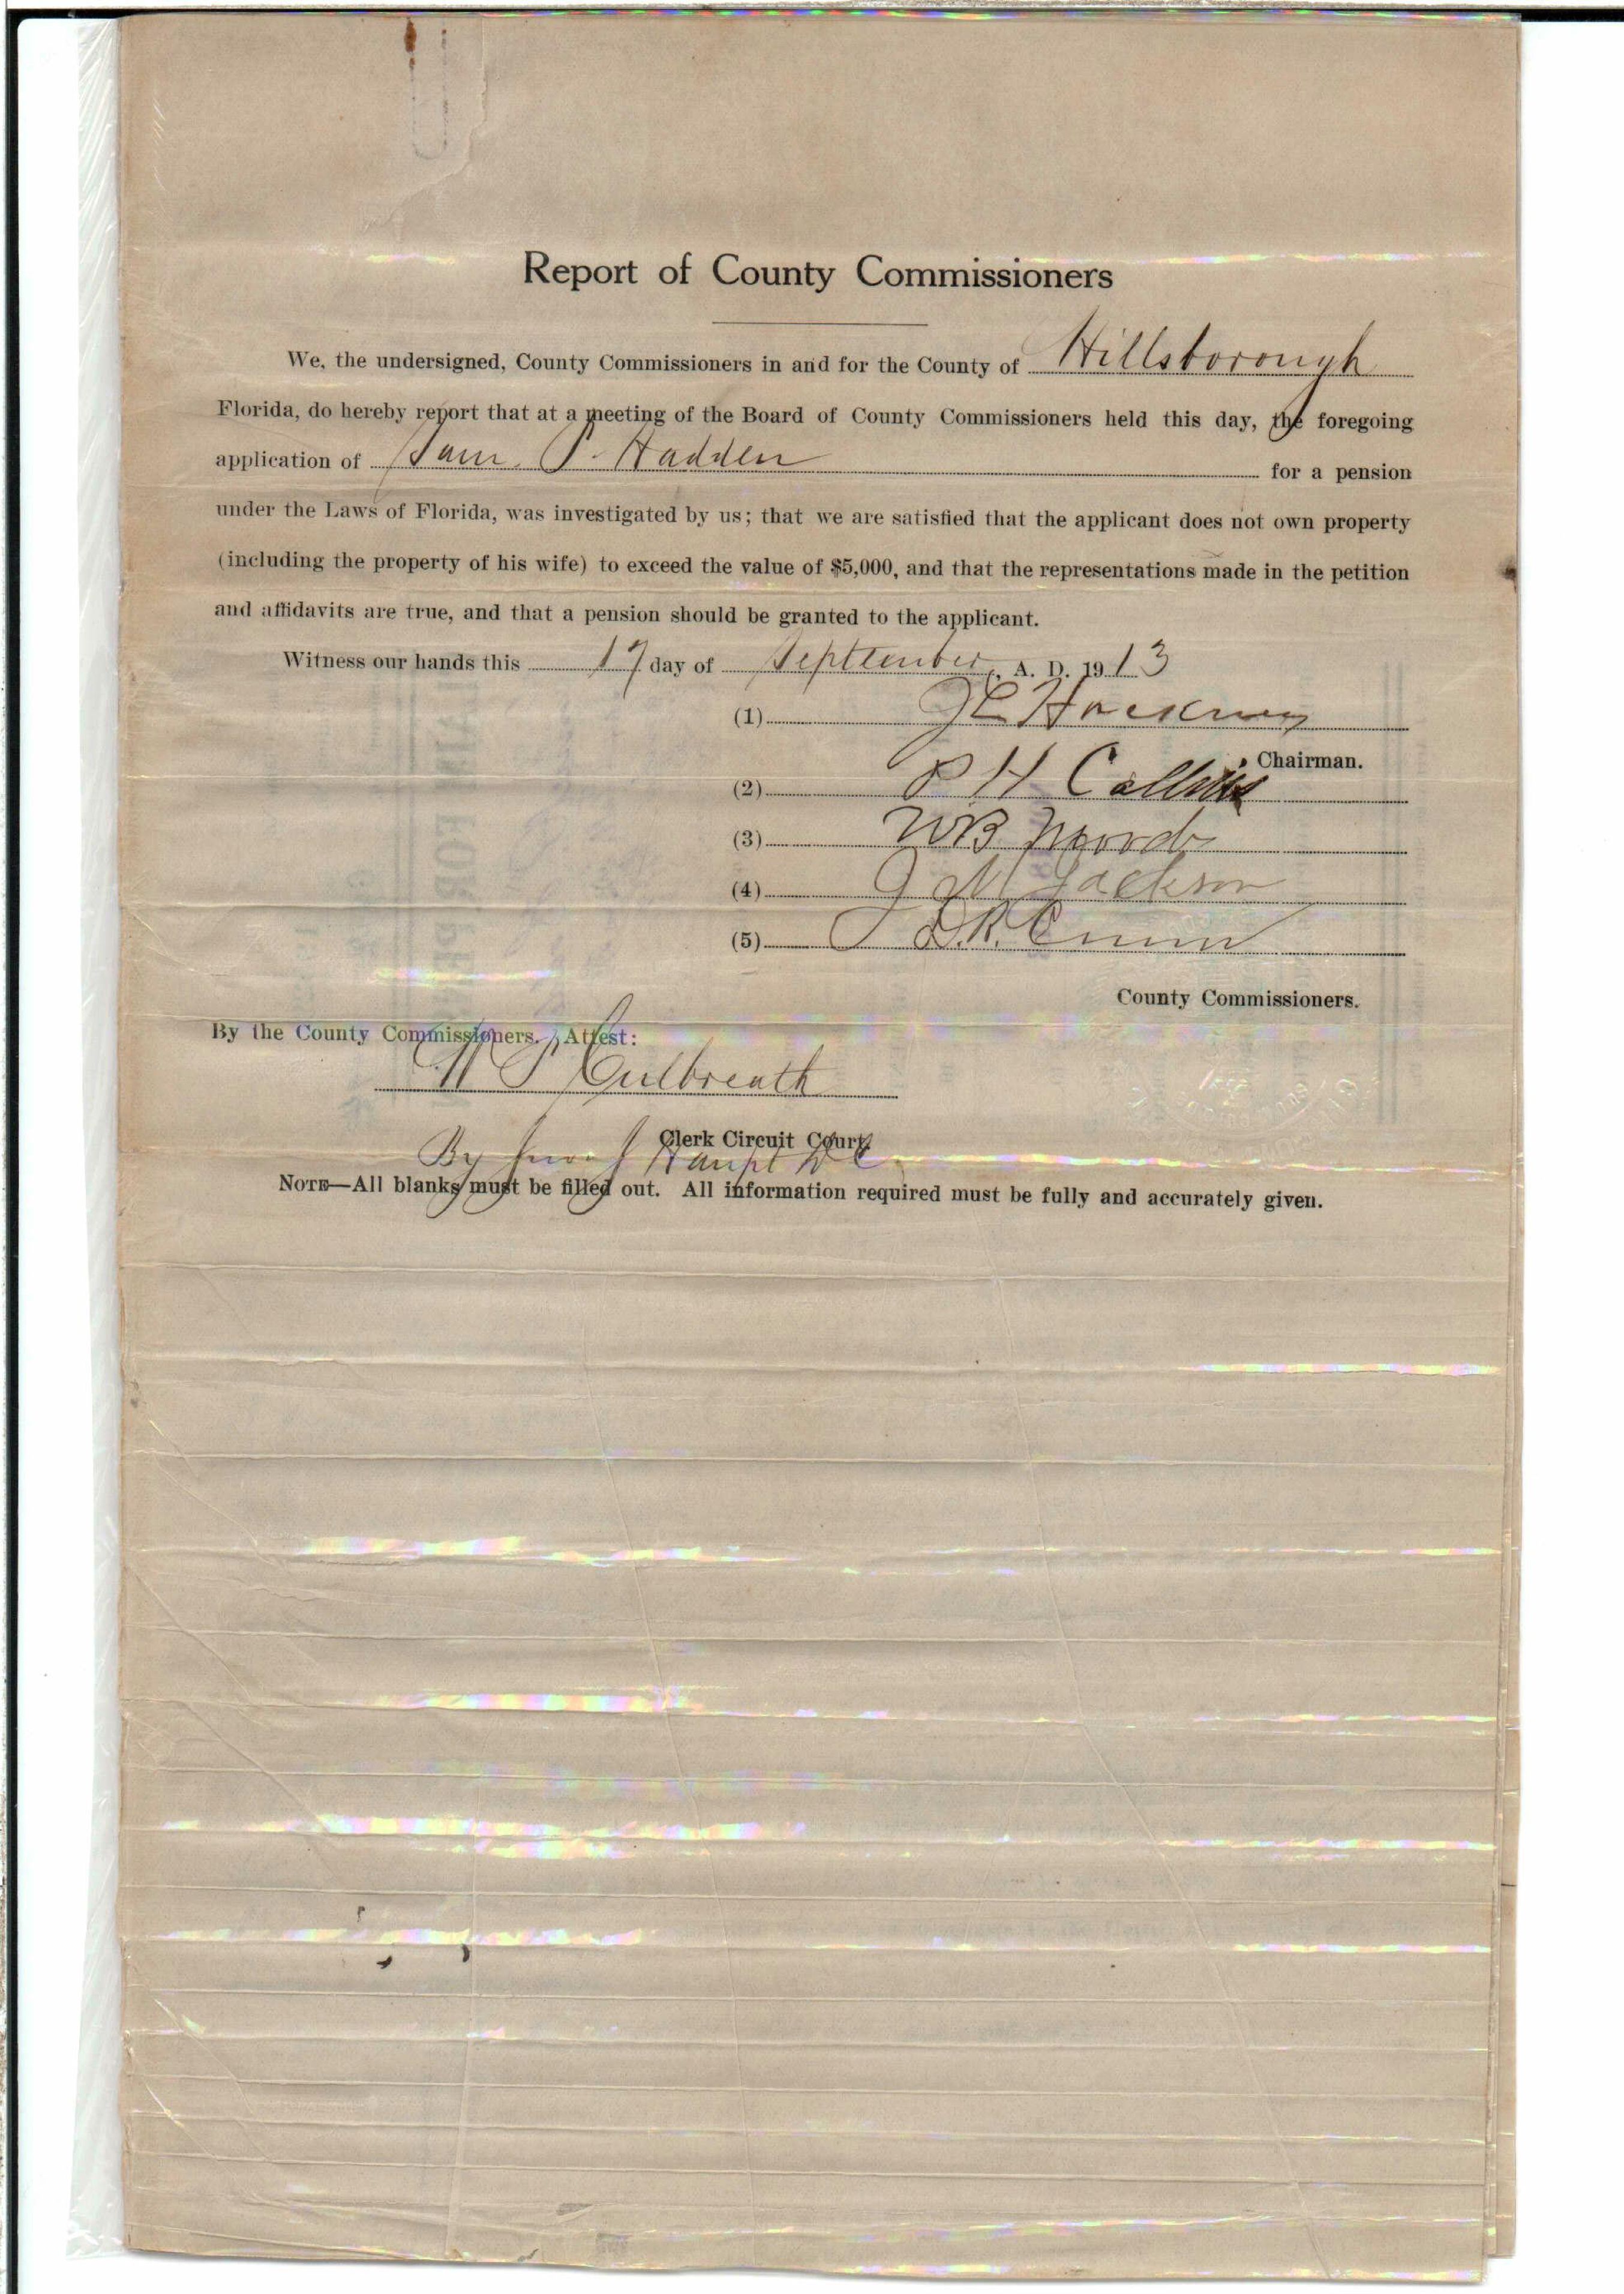 Report of County Commissioners
We, the undersigned, County Commissioners in and for the County of Hillsborough
Florida, do hereby report that at a meeting of the Board of County Commissioners held this day, the foregoing
application of Sam. P. Hadden for a pension
under the Laws of Florida, was investigated by us; that we are satisfied that the applicant does not own property
(including the property of his wife) to exceed the value of $5,000, and that the representations made in the petition
and affidavits are true, and that a pension should be granted to the applicant.
Witness our hands this 17 day of September, A. D. 1913
(1)
Chairman.
(2) P H Collins
(3) W B
(4) J M Jackson
(5)
County Commissioners.
By the County Commissioners. Attest:
W P Culbreath
Clerk Circuit Court.
By Haupt D C
NOTE—All blanks must be filled out. All information required must be fully and accurately given.